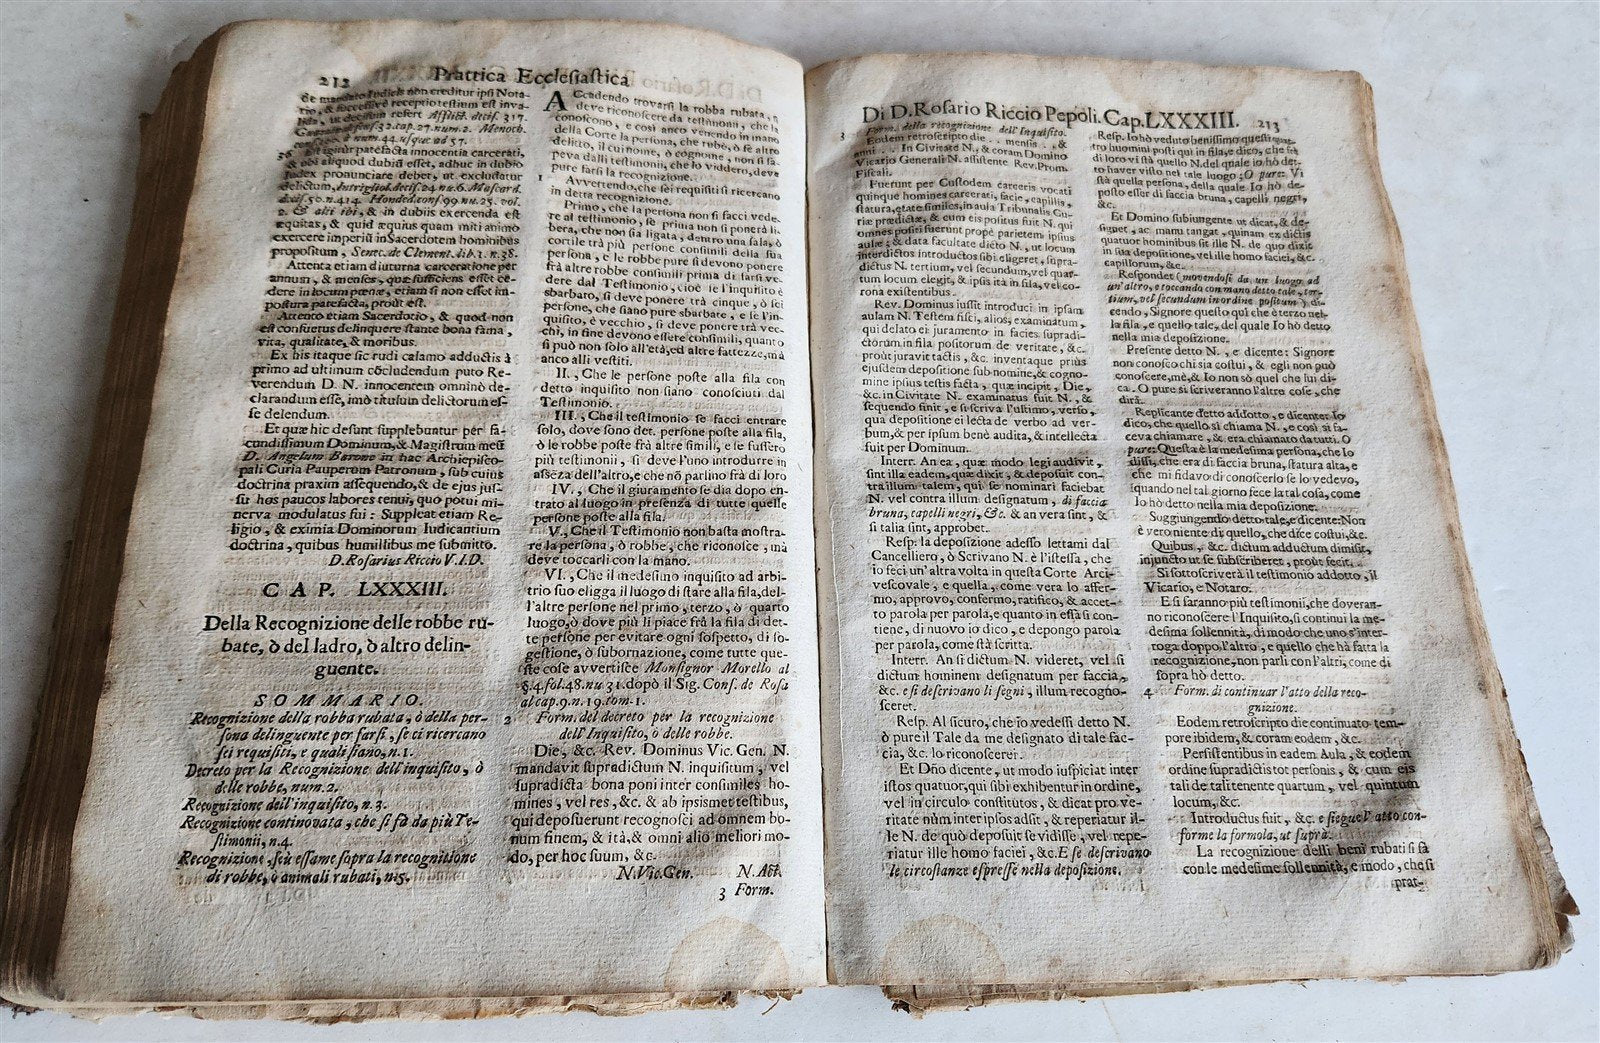 212 Prattica Ecclesiastica
de mandato Iudicis non creditur ipsi Nota-
rio, & successivè receptio testium est inva-
lida, ut decisum refert Afflict. decis. 317.
cap. 27. num. 2. Menoch.
num. 44. usque ad 57.
36 Et igitur patefacta innocentia carcerati,
& ubi aliquod dubiũ esset, adhuc in dubio
Iudex pronunciare debet, ut excludatur
delictum, Intrigliol. decis. 24 nu. 6. Moscard.
decis. 50. n. 414. Honded. cons. 99 nu. 25. vol.
2. & alti ibi, & in dubiis exercenda est
æquitas, & quid æquius quam miti animo
exercere imperiũ in Sacerdotem hominibus
propositum, Senec. de Clement. lib. 1. n. 38.
Attenta etiam diuturna carceratione per
annum, & menses, quæ sufficiens esset ce-
dere in locum pœnæ, etiam si non esset im-
postura patefacta, proùt est.
Attento etiam Sacerdotio, & quod non
est consuetus delinquere stante bona fama,
vita, qualitate, & moribus.
Ex his itaque sic rudi calamo adductis à
primo ad ultimum cõcludendum puto Re-
verendum D. N. innocentem omninò de-
clarandum esse, imò titulum delictorum es-
se delendum.
Et quæ hic desunt supplebuntur per fa-
cundissimum Dominum, & Magistrum meũ
D. Angelum Barone in hac Archiepisco-
pali Curia Pauperum Patronum, sub cuius
doctrina praxim assequendo, & de ejus jus-
su hos paucos labores tenui, quo potui mi-
nerva modulatus sui: Suppleat etiam Re-
ligio, & eximia Dominorum Iudicantium
doctrina, quibus humillibus me submitto.
D. Rosarius Riccio V. I. D.
CAP. LXXXIII.
Della Recognizione delle robbe ru-
bate, ò del ladro, ò altro delin-
quente.
SOMMARIO.
Recognizione della robba rubata, ò della per-
sona delinquente per farsi, se ci ricercano
sei requisiti, e quali siano, n. 1.
Decreto per la Recognizione dell'inquisito, ò
delle robbe, num. 2.
Recognizione dell'inquisito, n. 3.
Recognizione continovata, che si fà da più Te-
stimonii, n. 4.
Recognizione, seù essame sopra la recognitione
di robbe, ò animali rubati, n. 5.
ACcadendo trovarsi la robba rubata, si
deve riconoscere da testimonj, che la
conoscono, e così anco venendo in mano
della Corte la persona, che rubò, ò fè altro
delitto, il cui nome, ò cognome, non si sa-
peva dalli testimonii, che lo viddero, deve
pure farsi la recognizione.
1 Avvertendo, che sei requisiti si ricercano
in detta recognizione.
Primo, che la persona non si facci vede-
re al testimonio, se prima non si ponerà li-
bera, che non sia ligata, dentro una sala, ò
cortile trà più persone consimili della sua
persona, e le robbe pure si devono ponere
frà altre robbe consimili prima di farsi ve-
dere dal Testimonio, cioè se l'inquisito è
sbarbato, si deve ponere trà cinque, ò sei
persone, che siano pure sbarbate, e se l'in-
quisito, è vecchio, si deve ponere trà vec-
chi, in fine devono essere consimili, quanto
si può non solo all'età, ed altre fattezze, mà
anco alli vestiti.
II., Che le persone poste alla fila con
detto inquisito non siano conosciuti dal
Testimonio.
III., Che il testimonio se facci entrare
solo, dove sono det. persone poste alla fila,
ò le robbe poste frà altre simili, e se fussero
più testimonii, si deve l'uno introdurre in
assẽza dell'altro, e che nõ parlino frà di loro
IV., Che il giuramento se dia dopo en-
trato al luogo in presenza di tutte quelle
persone poste alla fila.
V., Che il Testimonio non basta mostra-
re la persona, ò robbe, che riconosce, mà
deve toccarli con la mano.
VI., Che il medesimo inquisito ad arbi-
trio suo eligga il luogo di stare alla fila, del-
l'altre persone nel primo, terzo, ò quarto
luogo, ò dove più li piace frà la fila di det-
te persone per evitare ogni sospetto, di so-
gestione, ò subornazione, come tutte que-
ste cose avvertisce Monsignor Morello al
§. 4. fol. 48. nu. 31. dopò il Sig. Cons. de Rosa
al cap. 9. n. 19. tom. 1.
2 Form. del decreto per la recognizione
dell'Inquisito, ò delle robbe.
Die, &c. Rev. Dominus Vic. Gen. N.
mandavit supradictum N. inquisitum, vel
supradicta bona poni inter consimiles ho-
mines, vel res, &c. & ab ipsismet testibus,
qui deposuerunt recognosci ad omnem bo-
num finem, & ità, & omni alio meliori mo-
do, per hoc suum, &c.
N. Vic. Gen. N. Act.
3 Form.
Di D. Rosario Riccio Pepoli. Cap. LXXXIII. 213
3 Form. della recognizione dell'Inquisito.
Eodem retroscripto die... mensis.., &
anni... In Civitate N., & coram Domino
Vicario Generali N. assistente Rev. Prom.
Fiscali.
Fuerunt per Custodem carceris vocati
quinque homines carcerati, facie, capillis,
statura, ætate similes, in aula Tribunalis Cu-
riæ prædictæ, & cum eis positus fuit N. qui
omnes positi fuerunt propè parietem ipsius
aulæ; & data facultate dicto N., ut locum
interdictos introductos sibi eligeret, supra-
dictus N. tertium, vel secundum, vel quar-
tum locum elegit, & ipsis ità in fila, vel co-
rona existentibus.
Rev. Dominus iussit introduci in ipsam
aulam N. Testem fisci, aliòs, examinatum,
qui delato ei juramento in facies supradi-
ctorum in fila positorum de veritate, &c.
proùt juravit tactis, &c. inventaque priùs
ejusdem depositione sub nomine, & cogno-
mine ipsius testis facta, quæ incipit, Die,
&c. in Civitate N. examinatus fuit N., &
sequendo finit, e si scriva l'ultimo, verso,
qua depositione ei lecta de verbo ad ver-
bum, & per ipsum benè audita, & intellecta
fuit per Dominum.
Interr. An ea, quæ modo legi audivit,
sint illa eadem, quæ dixit, & deposuit con-
tra illum talem, qui se nominari faciebat
N. vel contra illum designatum, di faccia
bruna, capelli negri, &c. & an vera sint, &
si talia sint, approbet.
Resp. la deposizione adesso lettami dal
Cancelliero, ò Scrivano N. è l'istessa, che
io feci un'altra volta in questa Corte Arci-
vescovale, e quella, come vera lo affer-
mo, approvo, confermo, ratifico, & accet-
to parola per parola, e quanto in essa si con-
tiene, di nuovo io dico, e depongo parola
per parola, come stà scritta.
Interr. An si dictum N. videret, vel si
dictum hominem designatum per faccia,
&c. e si descrivano li segni, illum recogno-
sceret.
Resp. Al sicuro, che io vedessi detto N.
ò pure il Tale da me designato di tale fac-
cia, &c. lo riconoscerei.
Et Dño dicente, ut modo iuspiciat inter
istos quatuor, qui sibi exhibentur in ordine,
vel in circulo constitutos, & dicat pro ve-
ritate nùm inter ipsos adsit, & reperiatur il-
le N. de quo deposuit se vidisse, vel repe-
riatur ille homo faciei, &c. E se descrivano
le circostanze espresse nella deposizione.
Resp. Io hò veduto benissimo questi quat-
tro huomini posti quì in fila, e dico, che frà
di loro vi stà quello N. del quale io hò det-
to haver visto nel tale luogo; O pure: Vi
stà quella persona, della quale Io hò de-
posto esser di faccia bruna, capelli negri,
&c.
Et Domino subiungente ut dicat, & de-
signet, ac manu tangat, quinam ex dictis
quatuor hominibus sit ille N. de quo dixit
in sua depositione, vel ille homo faciei, &c.
capillorum, &c.
Respondet (movendosi da un luogo ad
un'altro, e toccando con mano detto tale, ter-
tium, vel secundum in ordine positum) di-
cendo, Signore questo quì che è terzo nel-
la fila, e quello tale, del quale Io hò detto
nella mia deposizione.
Presente detto N., e dicente: Signore
non conosco chi sia costui, & egli non può
conoscere, mè, & Io non sò quel che lui di-
ca. O pure si scriveranno l'altre cose, che
dirà.
Replicante detto addotto, e dicente: Io
dico, che quello si chiama N., e così si fa-
ceva chiamare, & era chiamato da tutti. O
pure: Questa è la medesima persona, che Io
dissi, che era di faccia bruna, statura alta, e
che mi fidavo di conoscerlo se lo vedevo,
quando nel tal giorno fece la tal cosa, come
Io hò detto nella mia deposizione.
Suggiungendo detto tale, e dicente: Non
è vero niente di quello, che dice costui, &c.
Quibus, &c. dictum adductum dimisit,
injuncto ut se subscriberet, proùt fecit.
Si sottoscriverà il testimonio addotto, il
Vicario, e Notaro.
E si saranno più testimonii, che doveran-
no riconoscere l'Inquisito, si continui la me-
desima sollennità, di modo che uno s'inter-
roga doppo l'altro, e quello che hà fatta la
recognizione, non parli con l'altri, come di
sopra hò detto.
4 Form. di continuar l'atto della reco-
gnizione.
Eodem retroscripto die continuato tem-
pore ibidem, & coram eodem, &c.
Persistentibus in eadem Aula, & eodem
ordine supradictis tot personis, & cum eis
tali de tali tenente quartum, vel quintum
locum, &c.
Introductus fuit, &c. e siegue l'atto con-
forme la formola, ut suprà.
La recognizione delli beni rubati si fà
con le medesime sollennità, e modo, che si
prat-